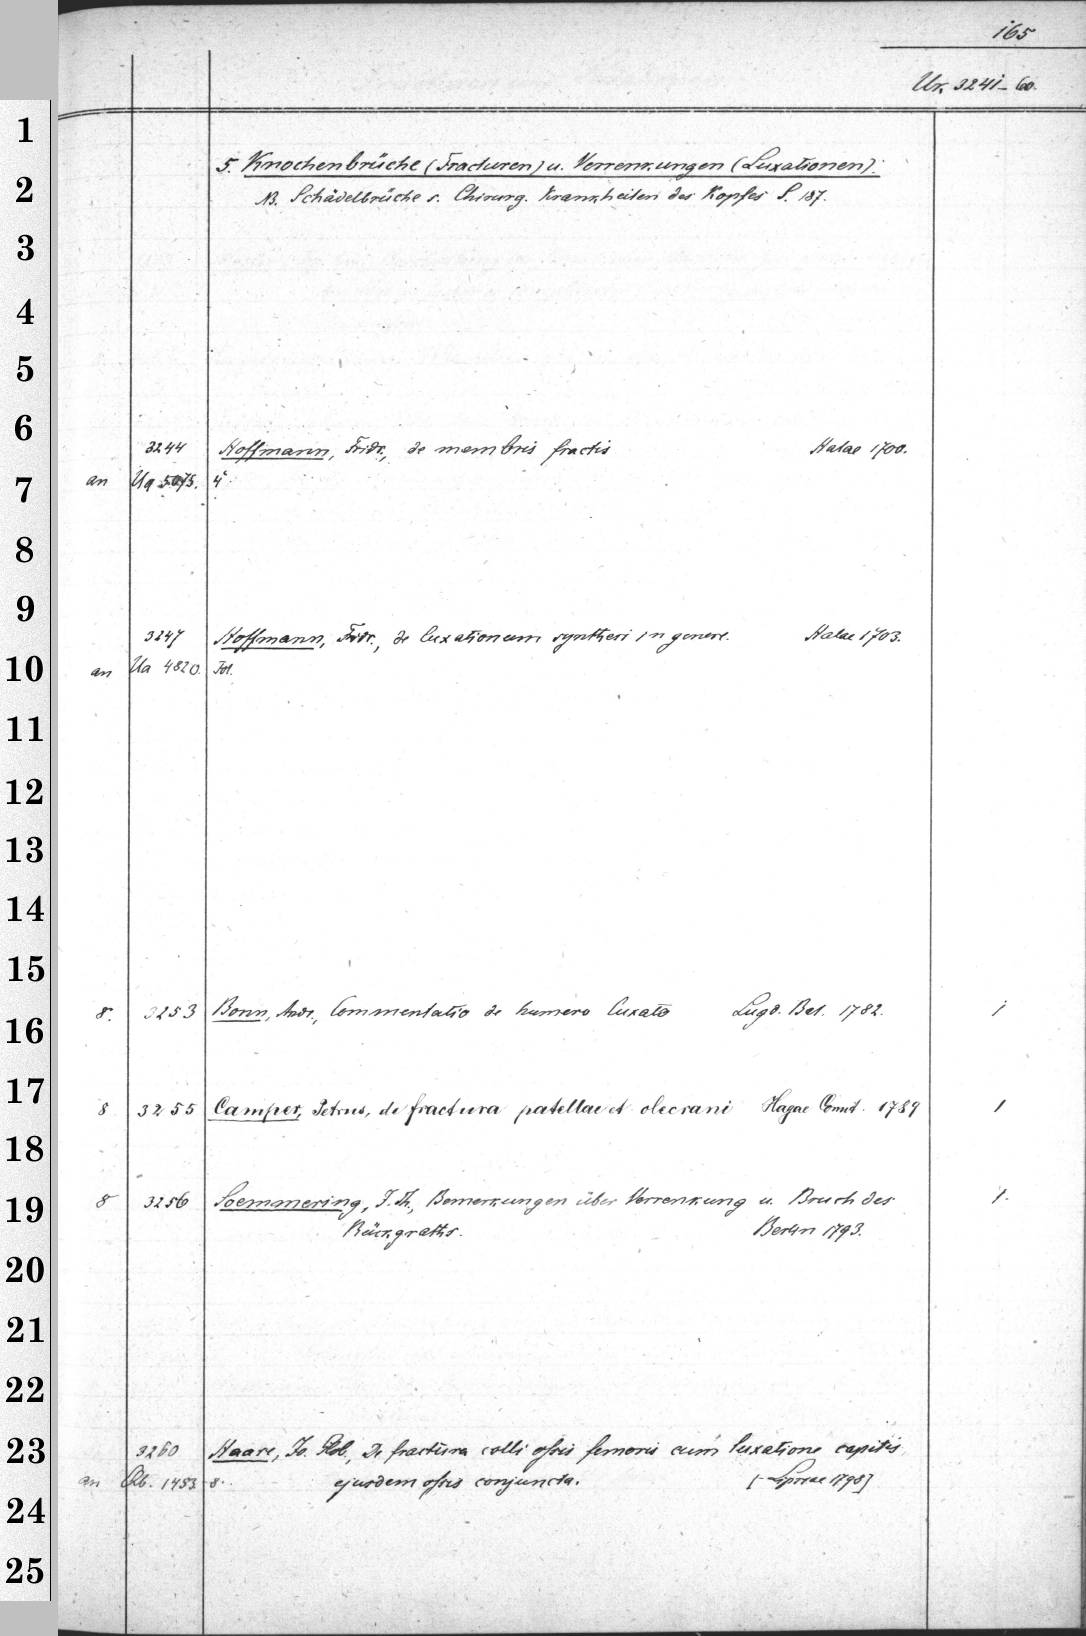 165
Ur. 3241-60.
5. Knochenbrüche (Fracturen) u. Verrenkungen (Luxationen).
NB. Schädelbrüche s. Chirurg. Krankheiten des Kopfes S. 187.
3244 Hoffmann, Fridr., de membris fractis Halae 1700.
an Ua 5075. 4°
3247 Hoffmann, Fridr., de luxationum syntheri in genere. Halae 1703.
an Ua 4820. Fol.
8. 3253 Bonn, Andr., Commentatio de humero luxato Lugd. Bat. 1782. 1
8 3255 Camper, Petrus, de fractura patellae et olecrani Hagae Comit. 1789 1
8 3256 Soemmering, S. Th., Bemerkungen über Verrenkung u. Bruch des 1.
Rückgraths. Berlin 1793.
3260 Haase, Jo. Glob., De fractura colli ossis femoris cum luxatione capitis
an 1453 8. ejusdem ossis conjuncta. [Lipsiae 1798]
1
2
3
4
5
6
7
8
9
10
11
12
13
14
15
16
17
18
19
20
21
22
23
24
25